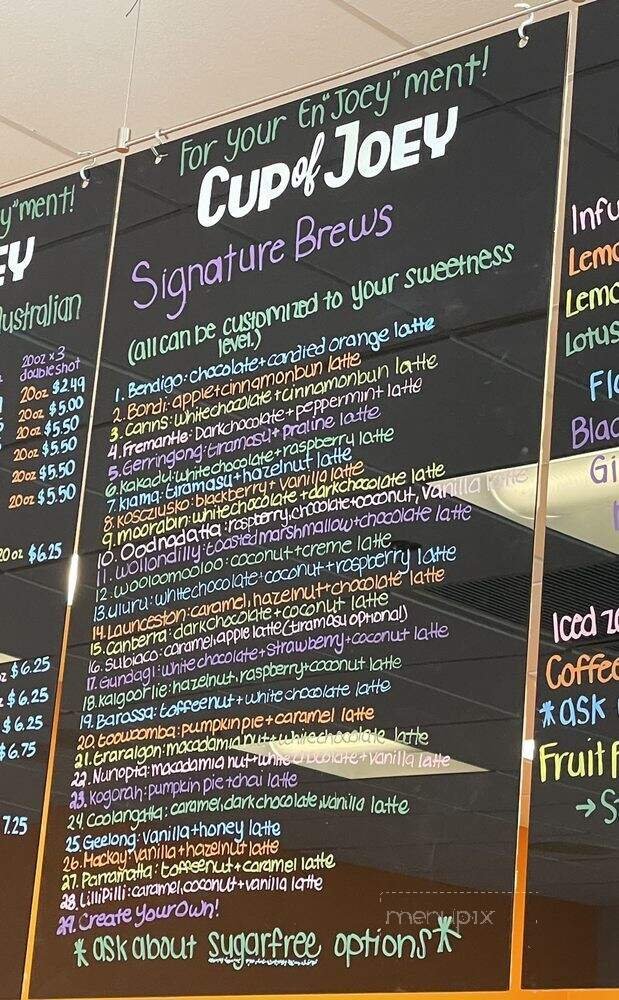 For your En"Joey"ment!
CUP of JOEY
Signature Brews
(all can be customized to your sweetness
level.)
1. Bendigo: chocolate + candied orange latte
2. Bondi: apple + cinnamonbun latte
3. Canns: whitechocolate + cinnamonbun latte
4. Fremantle: Darkchocolate + peppermint latte
5. Gerringong: tiramasu + praline latte
6. Kakadu: whitechocolate + raspberry latte
7. Kiama: tiramasu + hazelnut latte
8. Kosczlusko: blackberry + vanilla latte
9. moorabin: whitechocolate + darkchocolate latte
10. Oodnadatta: raspberry, chocolate + coconut, vanilla latte
11. Wollondilly: toasted marshmallow + chocolate latte
12. Wooloomooloo: coconut + creme latte
13. uluru: whitechocolate + coconut + raspberry latte
14. Launceston: caramel, hazelnut + chocolate latte
15. Canberra: darkchocolate + coconut latte
16. Subiaco: caramel, apple latte (tiramasu optional)
17. Gundagi: white chocolate + strawberry + coconut latte
18. Kalgoorlie: hazelnut, raspberry + coconut latte
19. Barossa: toffeenut + white chocolate latte
20. toowoomba: pumpkin pie + caramel latte
21. traralgon: macadamia nut + white chocolate latte
22. Nuriopta: macadamia nut + white chocolate + vanilla latte
23. Kogorah: pumpkin pie + chai latte
24. Coolangatta: caramel, dark chocolate, vanilla latte
25. Geelong: vanilla + honey latte
26. Mackay: vanilla + hazelnut latte
27. Parramatta: toffeenut + caramel latte
28. LilliPilli: caramel, coconut + vanilla latte
29. Create your Own!
*ask about sugarfree options*
y"ment!
EY
Australian
20oz x 3
doubleshot
20oz $2.49
20oz $5.00
20oz $5.50
20oz $5.50
20oz $5.50
20oz $5.50
20oz $6.25
$6.25
$6.25
$6.25
$6.75
7.25
Infu
Lemo
Lemo
Lotus
Fl
Blac
Gi
Iced
Coffee
*ask
Fruit F
→ S
menupix